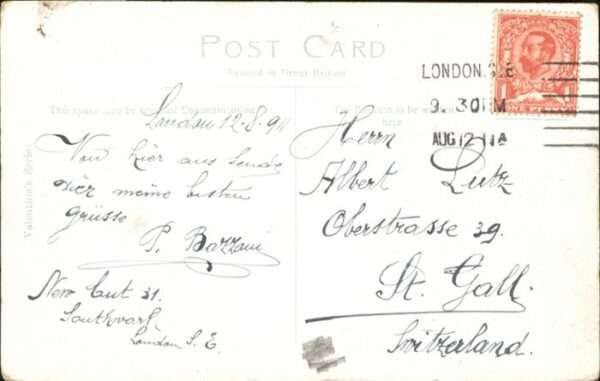 POST CARD
Printed in Great Britain
This space may be used for Communication
here
Valentine's Series
LONDON. S.E
9. 30 PM
AUG 12 11
London 12-8-911
Von hier aus sende
Dier meine besten
Grüsse
P. Bazzani
New Cut 31.
Southwark
London S. E.
Herrn
Albert Lutz
Oberstrasse 39.
St. Gall.
Switzerland.